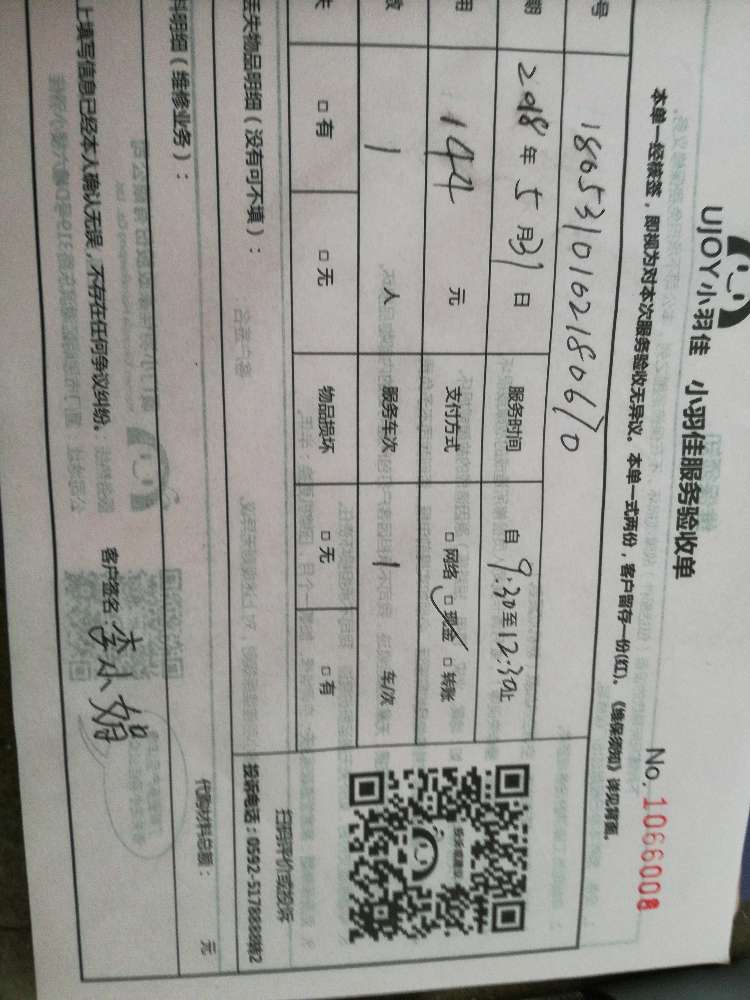 UJOY小羽佳 小羽佳服务验收单
本单一经核签,即视为对本次服务验收无异议。本单一式两份,客户留存一份(红)。《维保须知》详见背面。
No. 1066008
号 1805310102180670
期 2018年5月31日 服务时间 自9:30至12:30止
用 144元 支付方式 □网络 □现金 □转账
数 1 人 服务车次 1 车/次
失 □有 □无 物品损坏 □无 □有
丢失物品明细(没有可不填):
扫码评价或投诉
投诉电话:0592-5178888转2
料明细(维修业务):
代购材料总额: 元
上填写信息已经本人确认无误,不存在任何争议纠纷。
客户签名:李小娟